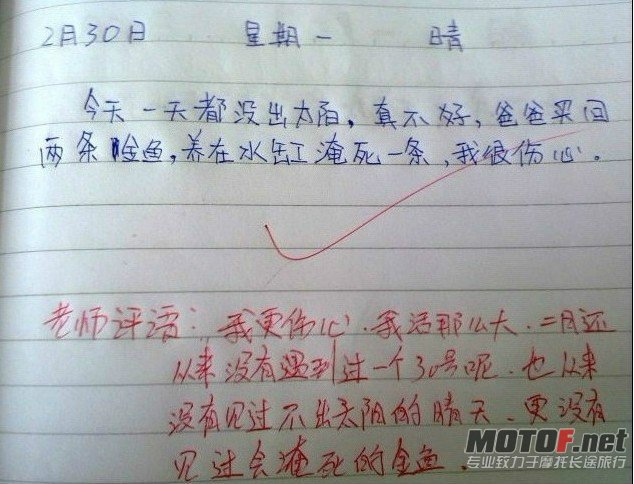 2月30日 星期一 晴
今天一天都没出太阳，真不好，爸爸买回
两条金鱼，养在水缸淹死一条，我很伤心。
老师评语：我更伤心.我活那么大.二月还
从来没有遇到过一个30号呢.也从来
没有见过不出太阳的晴天、更没有
见过会淹死的金鱼.
MOTOF.net
专业致力于摩托长途旅行